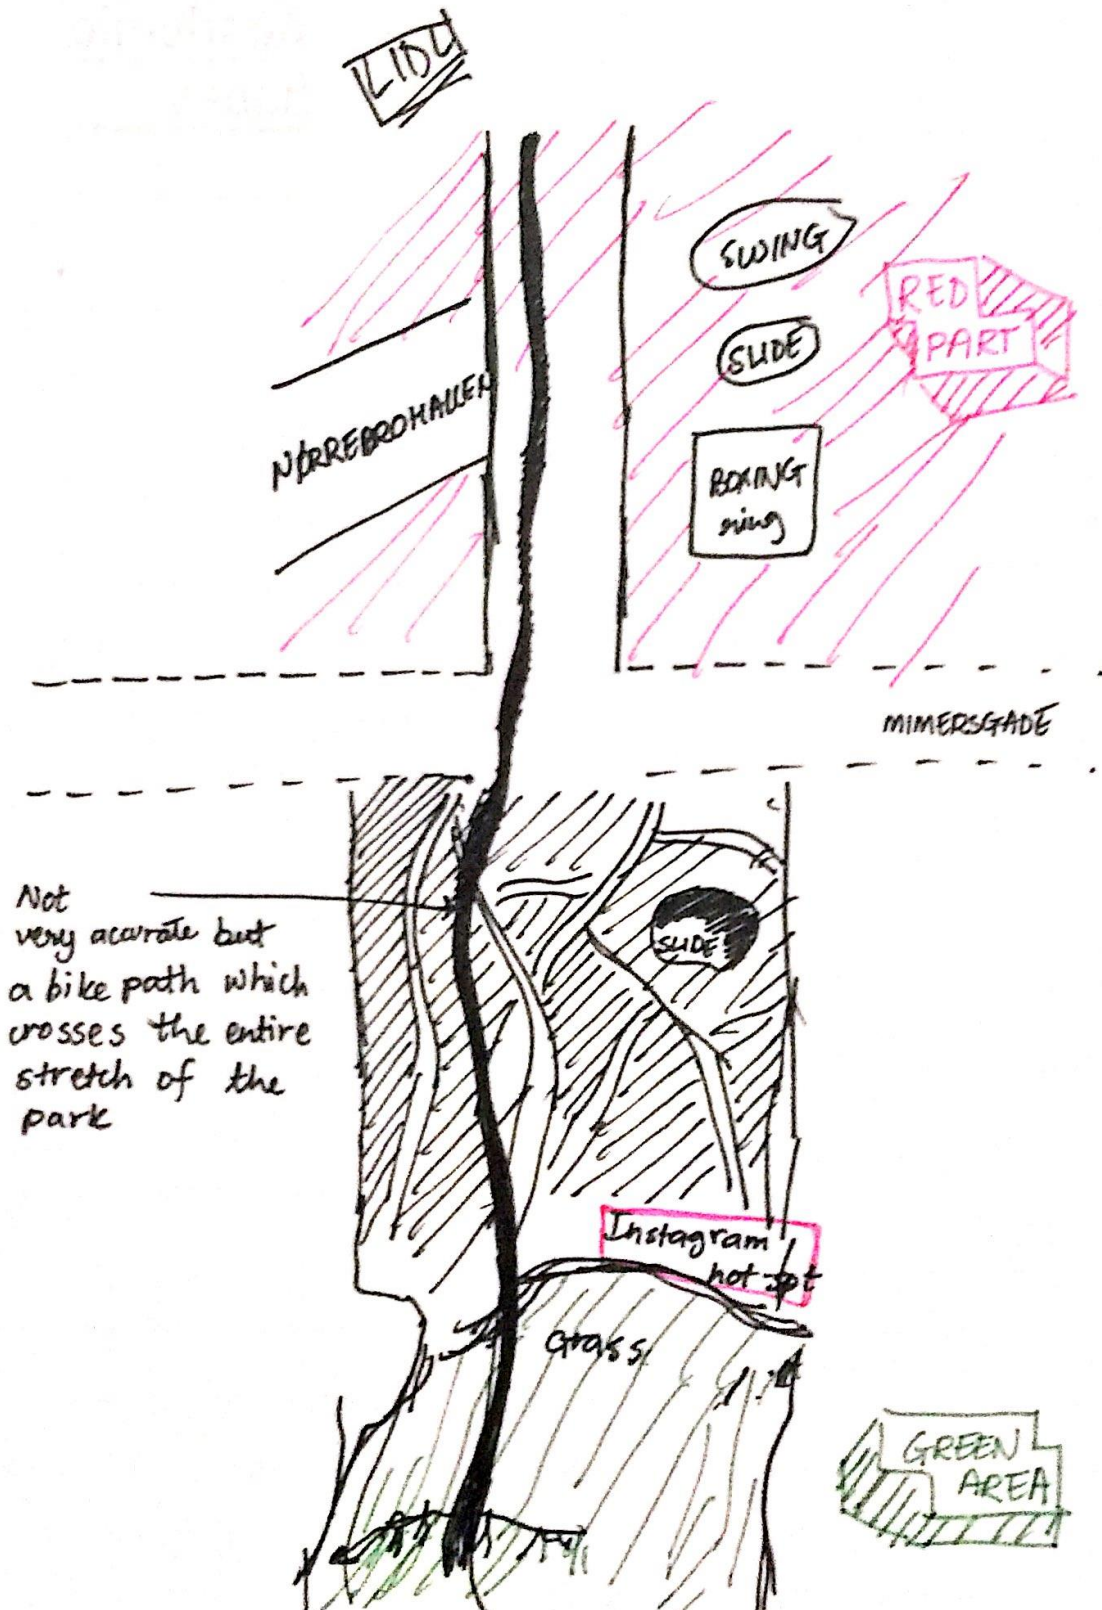 LIDL
SWING
RED
PART
SLIDE
NØRREBROHALLEN
BOXING
ring
MIMERSGADE
Not
very accurate but
a bike path which
crosses the entire
stretch of the
park
SLIDE
Instagram
hot spot
Grass
GREEN
AREA